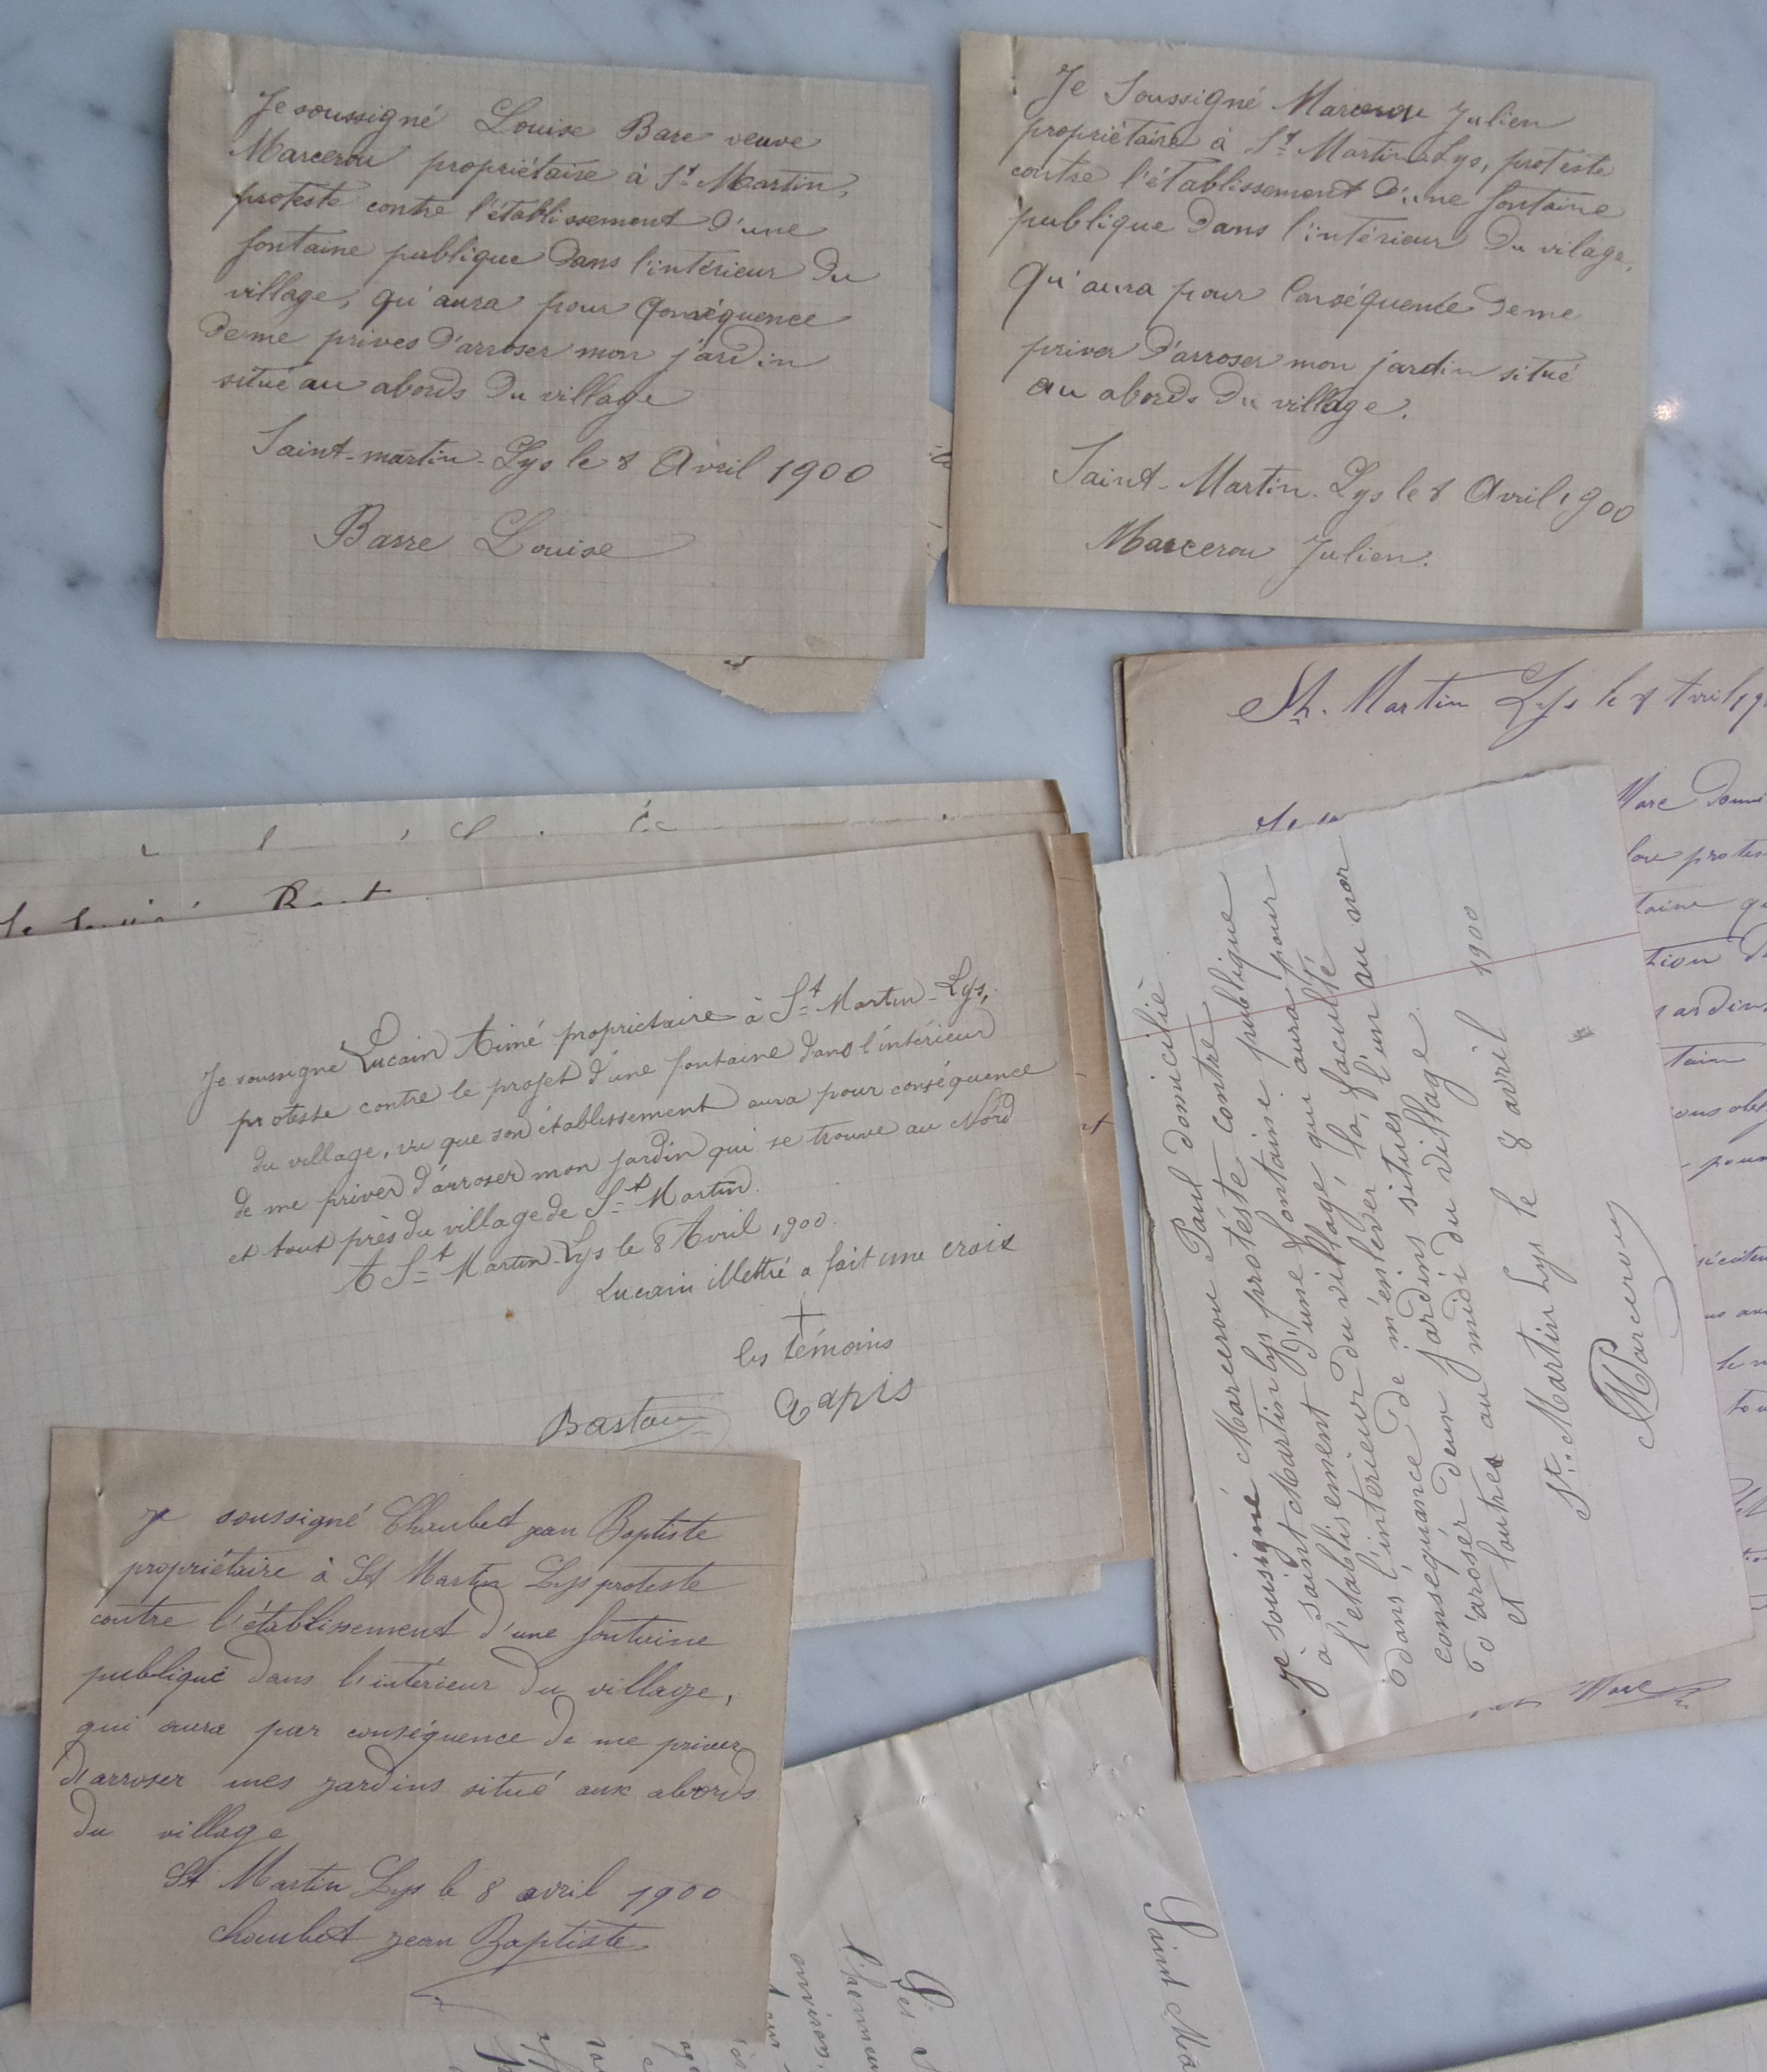 Je soussigné Louise Bare veuve
Marcerou propriétaire à St Martin,
proteste contre l'établissement d'une
fontaine publique dans l'intérieur du
village, qu'aura pour Conséquence
de me prives d'arroser mon jardin
situé au abords du village
Saint-martin-Lys le 8 Avril 1900
Barre Louise
Je Soussigné Marcerou Julien
propriétaire à St Martin Lys, proteste
contre l'établissement d'une fontaine
publique dans l'intérieur du vilage,
Qu'aura pour Conséquence de me
priver d'arroser mon jardin situé
au abords du village.
Saint-Martin-Lys le 8 Avril 1900
Marcerou Julien.
St. Martin Lys le 8 Avril 19
Marc
protes
Je soussigné Lucain Aimé propriétaire à St Martin-Lys,
proteste contre le projet d'une fontaine dans l'intérieur
du village, vu que son établissement aura pour conséquence
de me priver d'arroser mon jardin qui se trouve au Nord
et tout près du village de St Martin.
A St Martin-Lys le 8 Avril 1900.
Lucain illettré a fait une croix
+
les témoins
Bastou Capis
je sousigné Marcerou Paul domicilié
à saint Martin lys protéste contre
l'etablisement d'une fontaine publique
dans l'interieur du village, qui aura pour
conséquance de m'enlever la faculté
d'aroser deux jardins situés l'un au nor
et l'autres au midi du village.
St. Martin Lys le 8 avril 1900
Marcerou
Marc
je soussigné Chaubet jean Baptiste
propriétaire à St Martin Lys proteste
contre l'établissement d'une fontaine
publique dans l'intérieur du village,
qui aura pur conséquence de me priver
d'arroser mes jardins situé aux abords
du village
St Martin Lys le 8 avril 1900
Chaubet jean Baptiste
Saint Ma